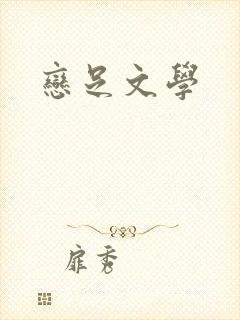 戀足文學
扉秀